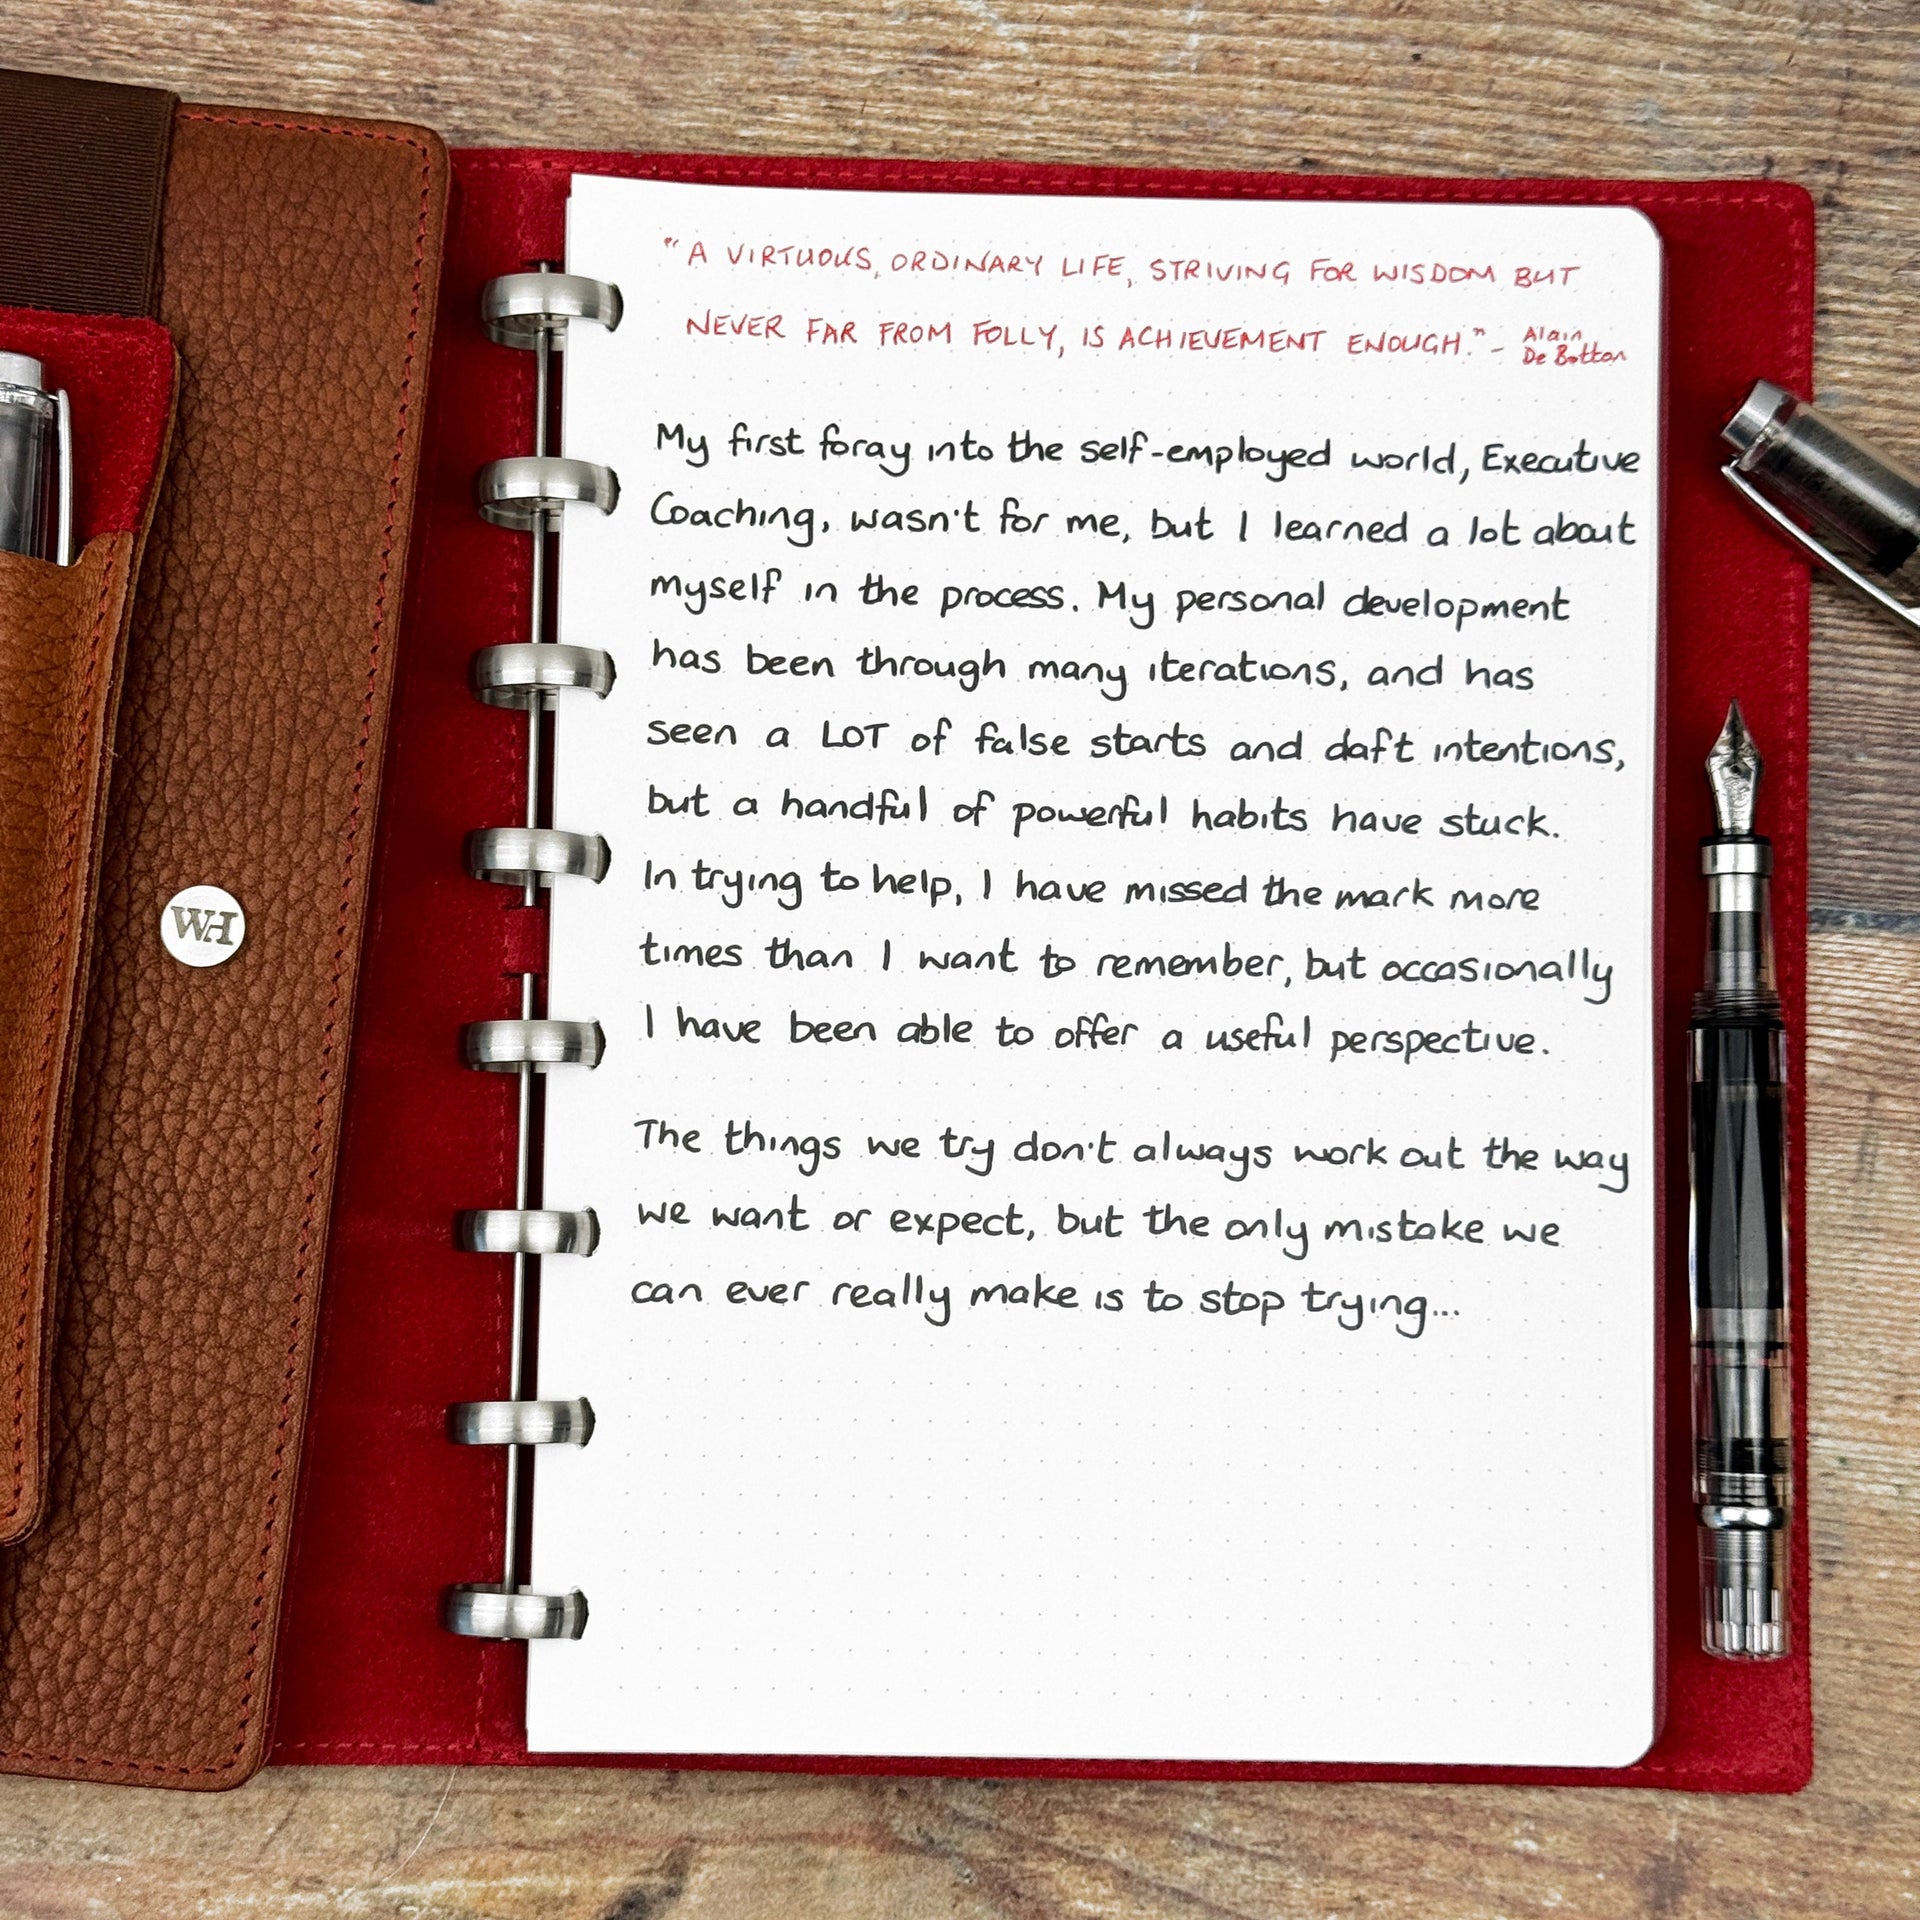 "A VIRTUOUS, ORDINARY LIFE, STRIVING FOR WISDOM BUT
NEVER FAR FROM FOLLY, IS ACHIEVEMENT ENOUGH." - Alain
De Botton
My first foray into the self-employed world, Executive
Coaching, wasn't for me, but I learned a lot about
myself in the process. My personal development
has been through many iterations, and has
seen a LOT of false starts and daft intentions,
but a handful of powerful habits have stuck.
In trying to help, I have missed the mark more
times than I want to remember, but occasionally
I have been able to offer a useful perspective.
The things we try don't always work out the way
we want or expect, but the only mistake we
can ever really make is to stop trying...
WH